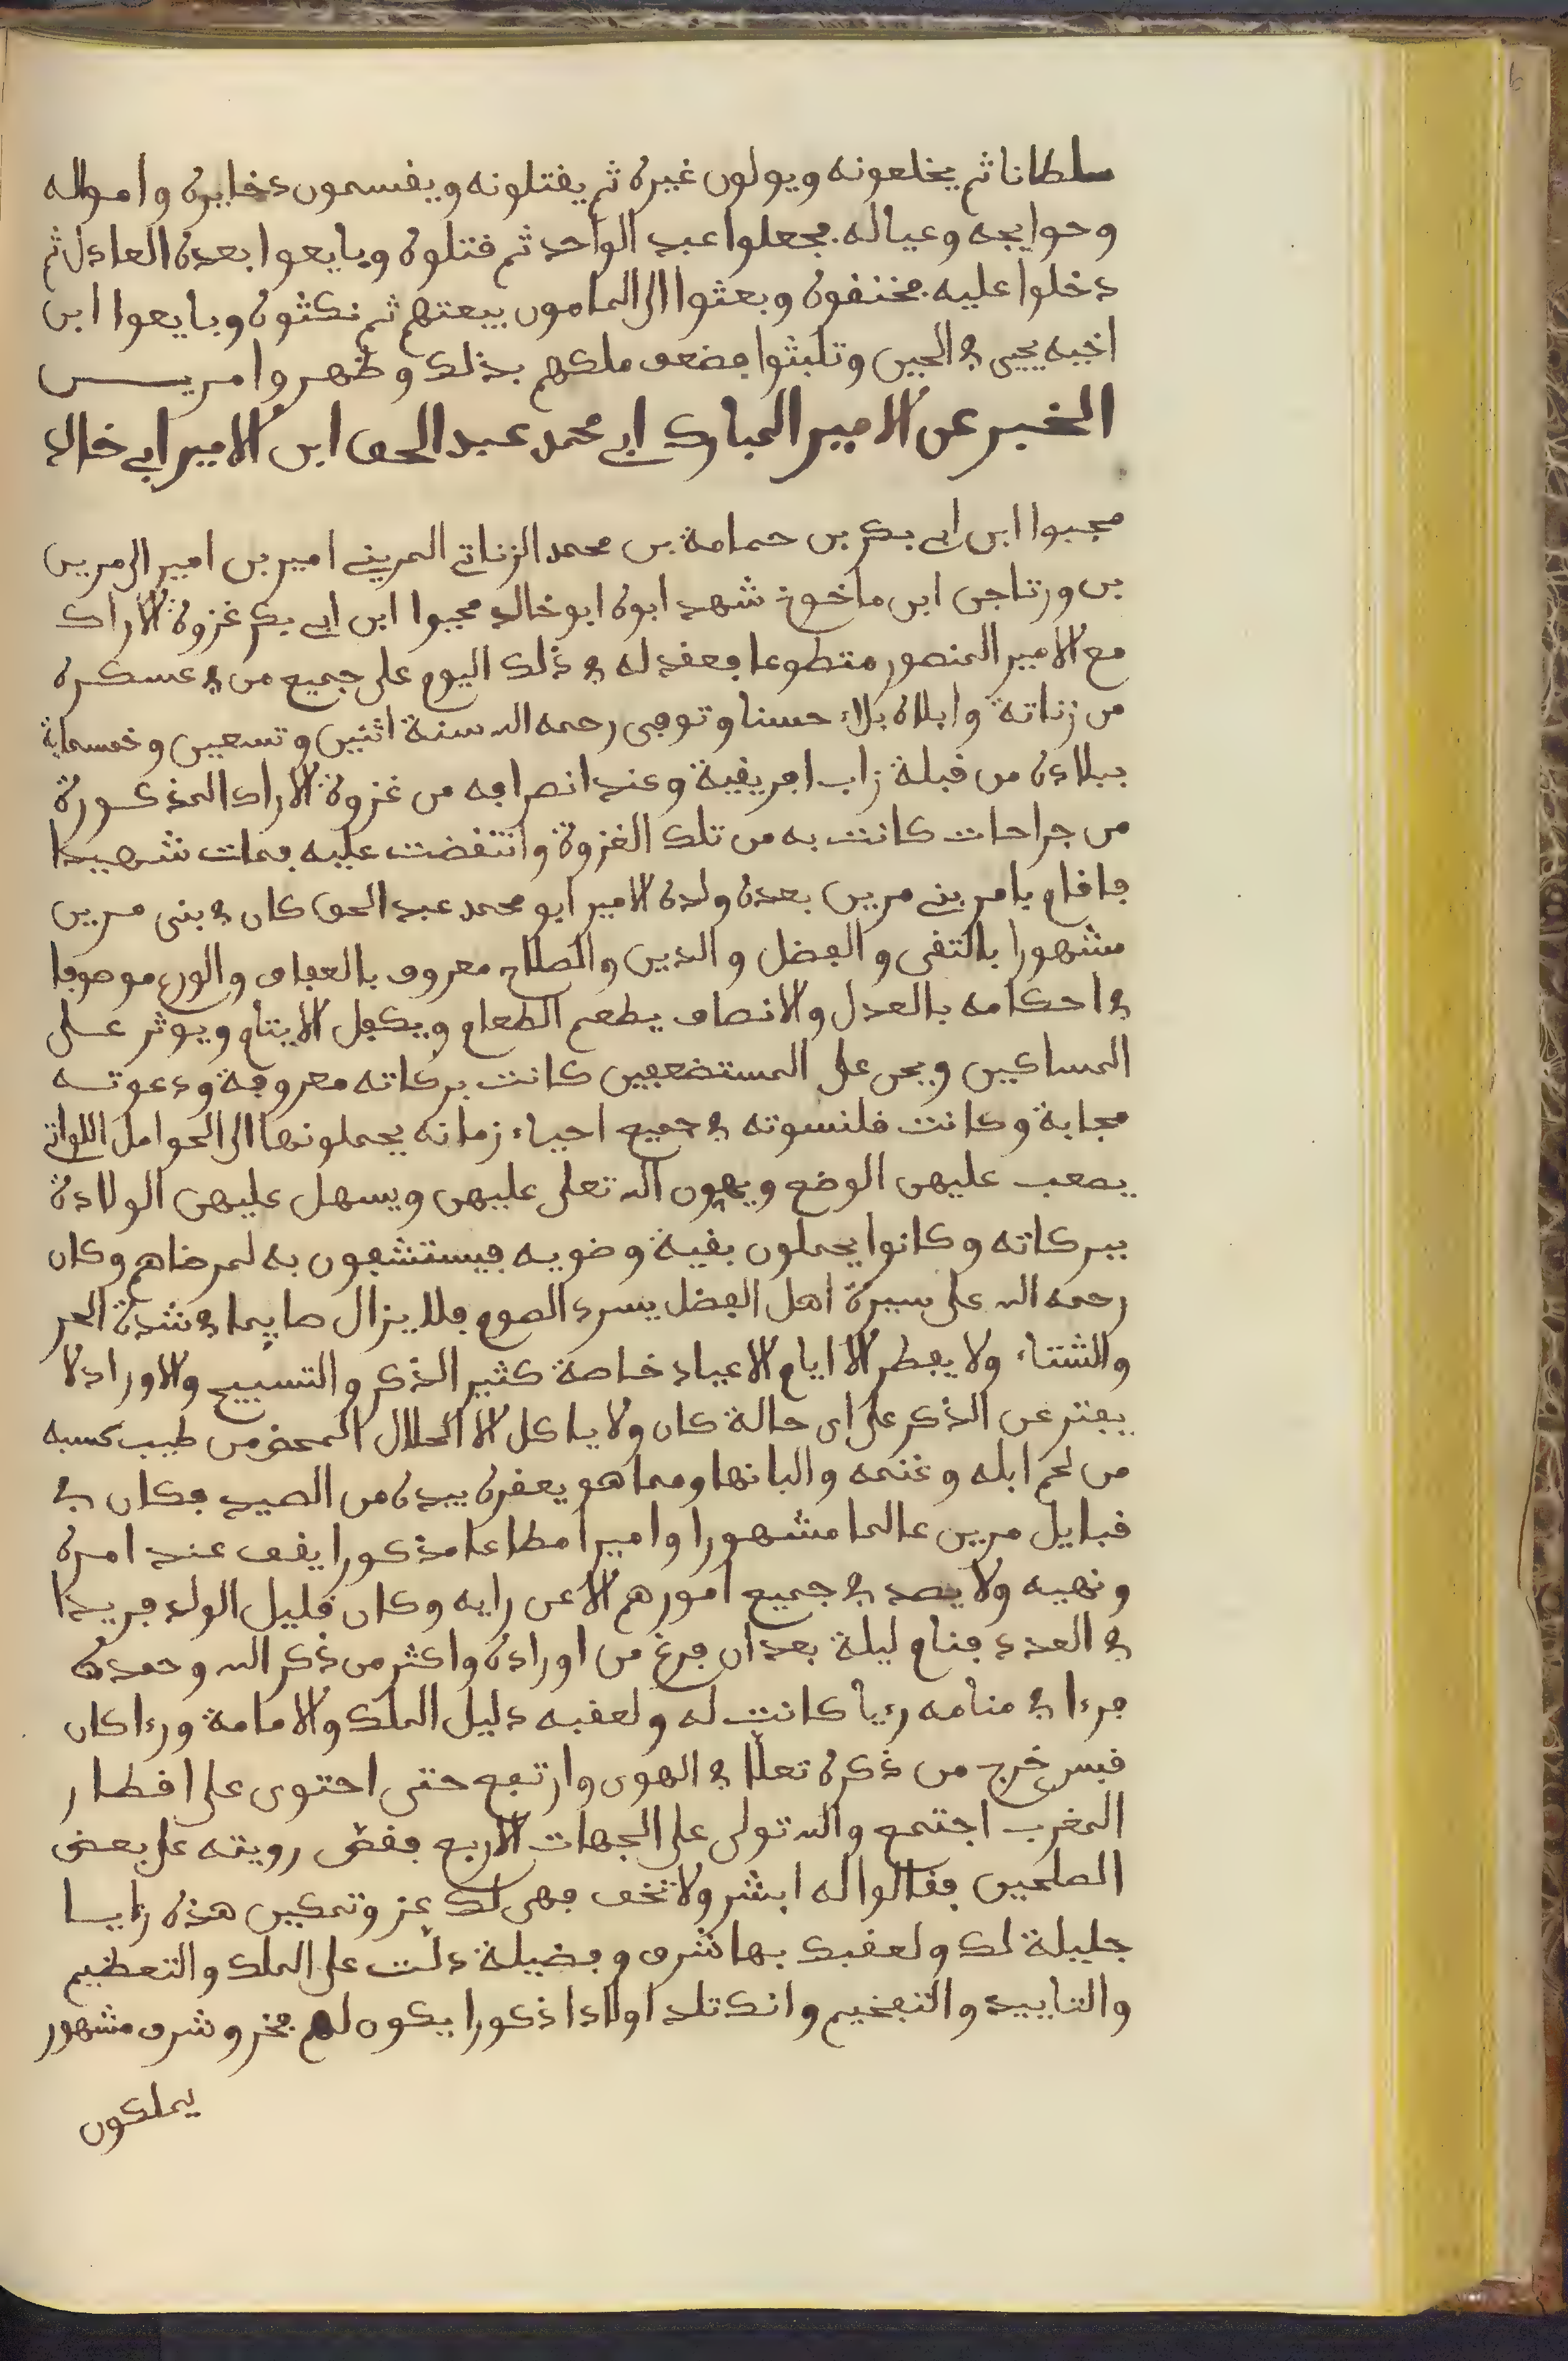 سلطانا ثم يخلعونه ويولون غيره ثم يقتلونه ويقسمون دخايره وامواله
وحوايجه وعياله فجعلوا عبد الواحد ثم قتلوه وبايعوا بعده العادل ثم
دخلوا عليه فخنقوه وبعثوا الى المامون ببيعتهم ثم نكثوه وبايعوا ابن
اخيه يحيى في الحين وتلبثوا فضعف ملكهم بذلك وظهروا مريـــن
الخبر عن الامير المبارك ابي محمد عبد الحق ابن الامير ابي خالد
محبوا ابن ابي بكر بن حمامة بن محمد الزناتي المريني امير بن امير الى مرين
بن ورتاجن ابن ماخوخ شهد ابوه ابو خالد محبوا ابن ابي بكر غزوة الاراك
مع الامير المنصور متطوعا فعقد له في ذلك اليوم على جميع من في عسكره
من زناتة وابلاه بلاء حسنا وتوفى رحمه الله سنة اثنين وتسعين وخمسماية
ببلاده من قبلة زاب افريقية وعند انصرافه من غزوة الاراك المذكورة
من جراحات كانت به من تلك الغزوة وانتفضت عليه فمات شهيدا
فاقام بامر بني مرين بعده ولده الامير ابو محمد عبد الحق كان في بنى مرين
مشهورا بالتقى والفضل والدين والصلاح معروف بالعفاف والورع موصوفا
في احكامه بالعدل والانصاف يطعم الطعام ويكفل الايتام ويوثر على
المساكين ويحن على المستضعفين كانت بركاته معروفة ودعوته
مجابة وكانت قلنسوته في جميع احياء زمانه يحملونها الى الحوامل اللواتي
يصعب عليهن الوضع ويهون الله تعلى عليهن ويسهل عليهن الولادة
ببركاته وكانوا يحملون بقية وضويه فيستشفون به لمرضاهم وكان
رحمه الله على سيرة اهل الفضل يسرد الصوم فلا يزال صايما في شدة الحر
والشتاء ولا يفطر الا ايام الاعياد خاصة كثير الذكر والتسبيح والاوراد لا
يفتر عن الذكر على اى حالة كان ولا ياكل الا الحلال المحض من طيب كسبه
من لحم ابله وغنمه والبانها ومما هو يعفره بيده من الصيد فكان في
قبايل مرين عالما مشهورا واميرا مطاعا مذكورا يقف عند امره
ونهيه ولا يصد في جميع امورهم الا عن رايه وكان قليل الولد فريدا
في العدد فنام ليلة بعد ان فرغ من اوراده واكثر من ذكر الله وحمده
فرءا في منامه رءيا كانت له ولعقبه دليل الملك والامامة ورءا كان
قبس خرج من ذكره تعلّا في الهوى وارتفع حتى احتوى على اقطار
المغرب اجتمع والله تولى على الجهات الاربع فقصّ رويته على بعض
الصلحين فقالوا له ابشر ولا تخف فهى لك عز وتمكين هذه رءيا
جليلة لك ولعقبك بها شرف وفضيلة دلّت على الملك والتعظيم
والتاييد والتفخيم وانك تلد اولادا ذكورا يكون لهم فخر وشرف مشهور
يملكون